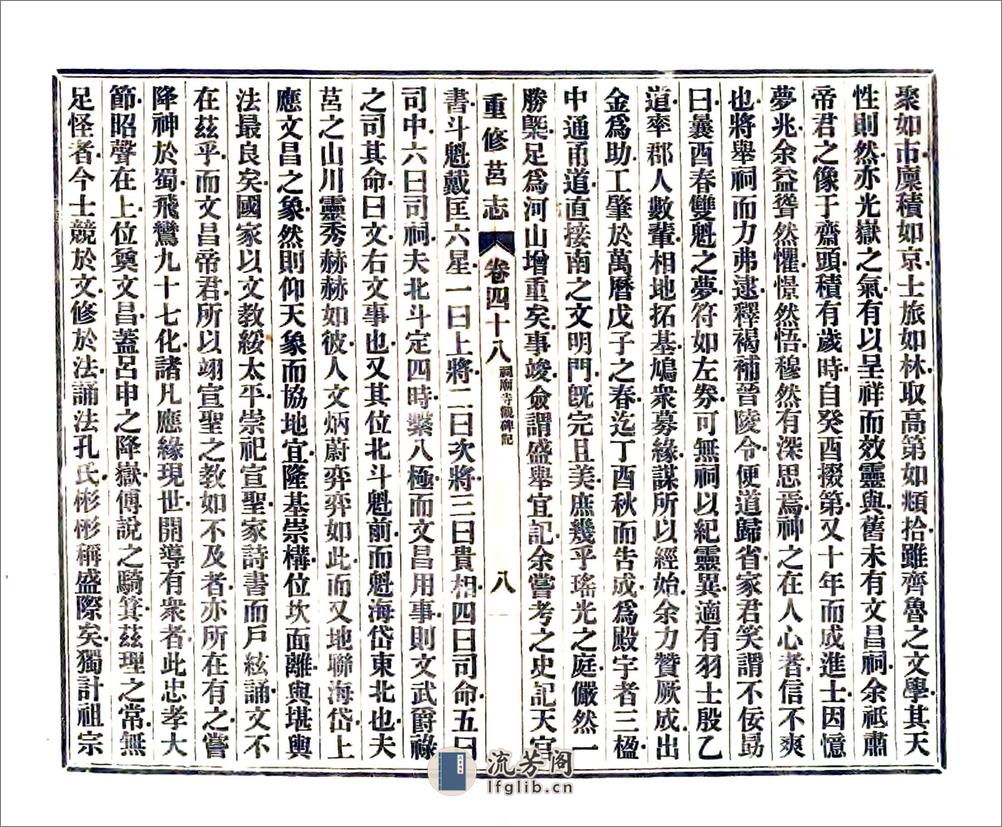 聚如市廩積如京士旅如林取高第如頫拾雖齊魯之文學其天
性則然亦光嶽之氣有以呈祥而效靈與舊未有文昌祠余祇肅
帝君之像于齋頭積有歲時自癸酉掇第又十年而成進士因憶
夢兆余益聳然懼憬然悟穆然有深思焉神之在人心者信不爽
也將舉祠而力弗逮釋褐補晉陵令便道歸省家君笑謂不佞勗
曰曩酉春雙魁之夢符如左券可無祠以紀靈異適有羽士殷乙
道率郡人數輩相地拓基鳩衆募緣謀所以經始余力贊厥成出
金爲助工肇於萬曆戊子之春迄丁酉秋而告成爲殿宇者三楹
中通甬道直接南之文明門旣完且美庶幾乎瑤光之庭儼然一
勝槩足爲河山增重矣事竣僉謂盛舉宜記余嘗考之史記天官
重修莒志 卷四十八 祠廟寺觀碑記 八
書斗魁戴匡六星一曰上將二曰次將三曰貴相四曰司命五曰
司中六曰司祠夫北斗定四時繫八極而文昌用事則文武爵祿
之司其命曰文右文事也又其位北斗魁前而魁海岱東北也夫
莒之山川靈秀赫赫如彼人文炳蔚弈弈如此而又地聯海岱上
應文昌之象然則仰天象而協地宜隆基崇構位坎面離與堪輿
法最良矣國家以文教綏太平崇祀宣聖家詩書而戶絃誦文不
在茲乎而文昌帝君所以翊宣聖之教如不及者亦所在有之嘗
降神於蜀飛鸞九十七化諸凡應緣現世開導有衆者此忠孝大
節昭聲在上位奠文昌蓋呂申之降嶽傅說之騎箕茲理之常無
足怪者今士競於文修於法誦法孔氏彬彬稱盛際矣獨計祖宗
流芳阁
lfglib.cn